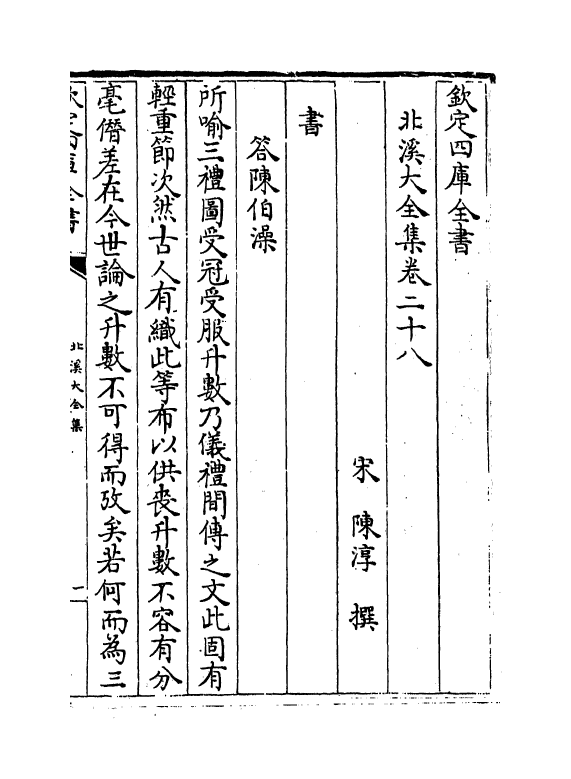 欽定四庫全書
北溪大全集卷二十八
宋 陳淳 撰
書
答陳伯澡
所喻三禮圖受冠受服升數乃儀禮間傳之文此固有
輕重節次然古人有織此等布以供喪升數不容有分
毫僭差在今世論之升數不可得而攷矣若何而為三
欽定四庫全書
北溪大全集
一